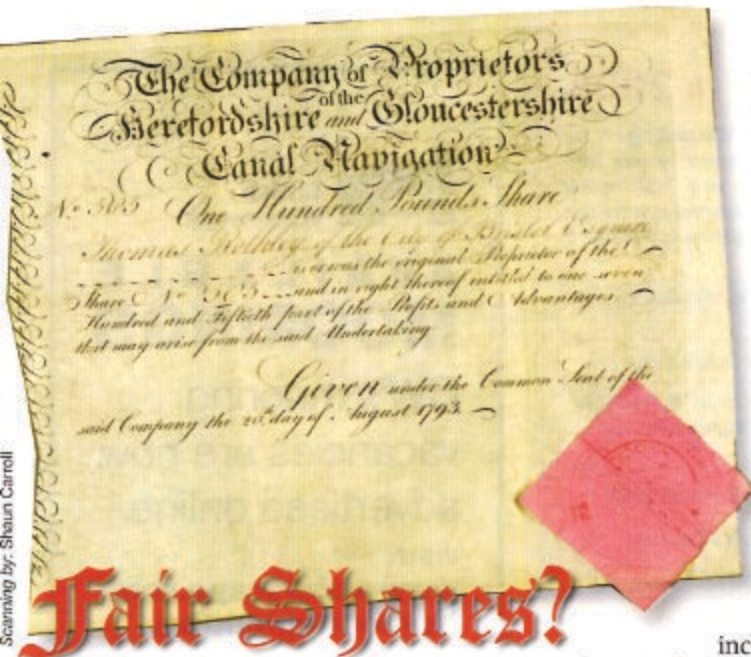 The Company of Proprietors
of the
Herefordshire and Gloucestershire
Canal Navigation
No. 305 One Hundred Pounds Share
Thomas of the City of Bristol Esquire
is or was the original Proprietor of the
Share No. 305 and in right thereof entitled to one seven
Hundred and Fiftieth part of the Profits and Advantages
that may arise from the said Undertaking
Given under the Common Seal of the
said Company the day of August 1793.
Scanning by: Shaun Carroll
Fair Shares?
inc